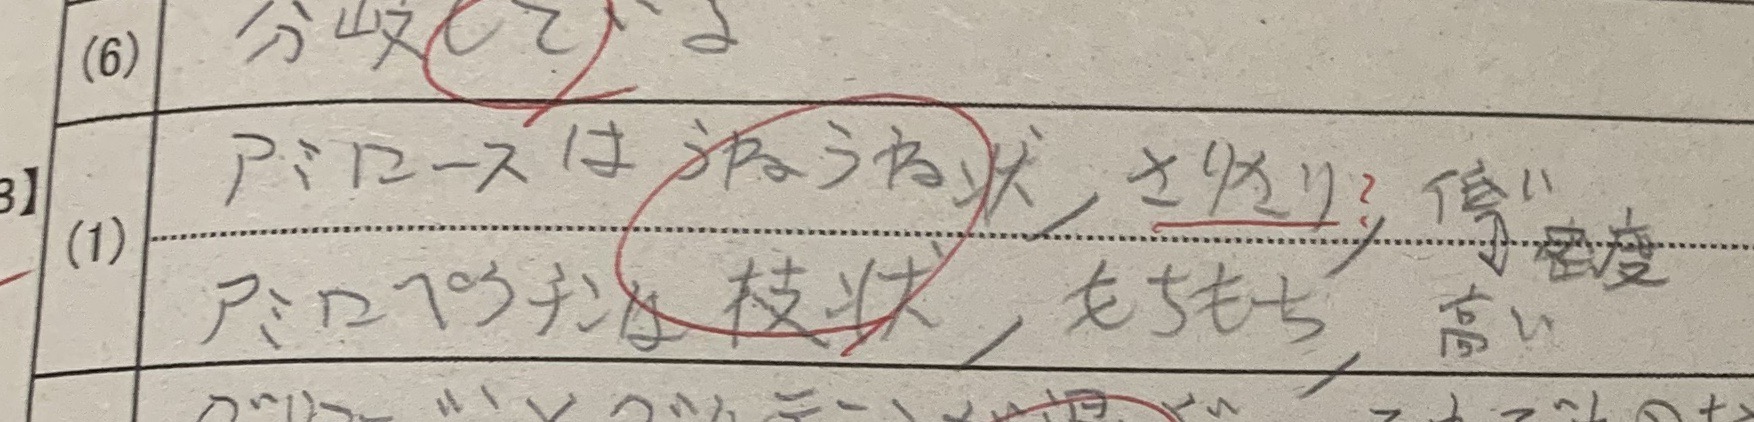 (6) 分岐している
3】
(1) アミロースはうねうね状, さりさり?, 低い
↕ 密度
アミロペクチンは枝状, もちもち, 高い